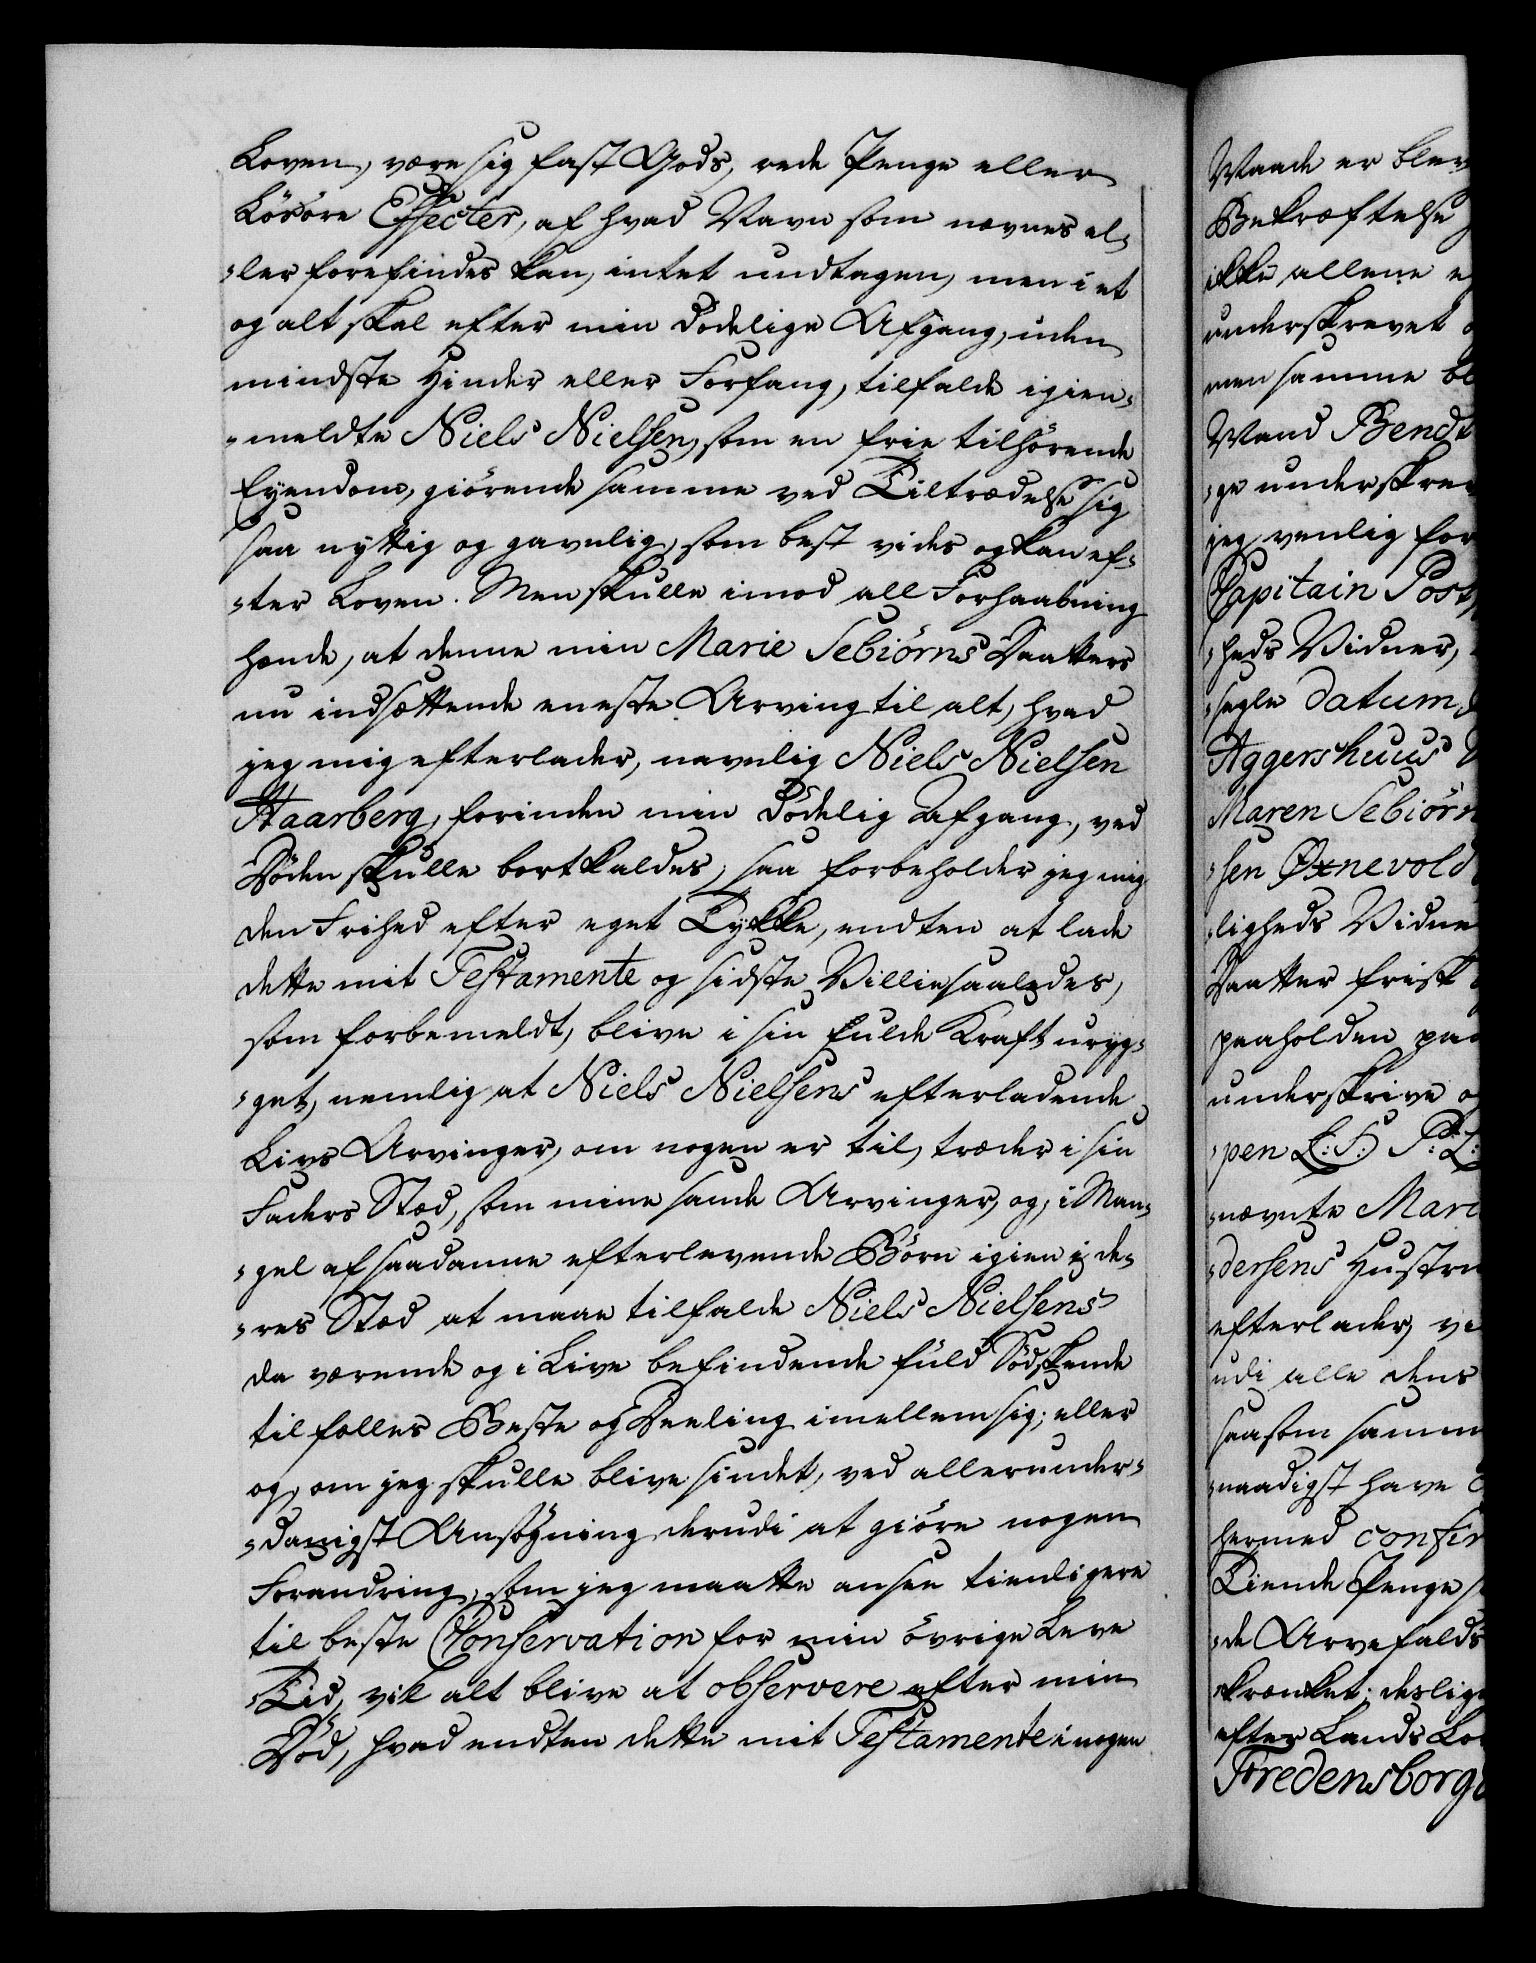 Loven, være sig fast Gods, rede Penge eller
Lösöre Effecter, af hvad Navn som nævnes el-
-ler forefindes kan, intet undtagen, men i et
og alt skal efter min Dödelige Afgang, uden
mindste Hinder eller Forfang, tilfalde igien-
-meldte Niels Nielsen, som en frie tilhörende
Eyendom, giörende samme ved Tiltrædelse sig
saa nyttig og gavnlig, som best vides og kan ef-
-ter Loven. Men skulle imod all Forhaabning
hænde, at denne min Marie Sebiörns Daatters
nu indsættende eneste Arving til alt, hvad
jeg mig efterlader, navnlig Niels Nielsen
Haarberg, forinden min Dödelig Afgang, ved
Döden skulle bortkaldes, saa forbeholder jeg mig
den Frihed efter eget Tykke, endten at lade
dette mit Testamente og sidste Villie saaledes,
som forbemeldt, blive i sin fulde Kraft uryg-
-get, nemlig at Niels Nielsens efterladende
Livs Arvinger, om nogen er til, træder i sin
Faders Stæd, som mine sande Arvinger, og, i Man-
-gel af saadanne efterlevende Börn igien i de-
-res Stæd at maae tilfalde Niels Nielsens
da værende og i Live befindende fuld Södskende
til fælles Beste og Deeling imellem sig; eller
og, om jeg skulle blive sindet, ved allerunder-
-danigst Ansögning derudi at giöre nogen
Forandring, som jeg maatte ansee tienligere
til beste Conservation for min övrige Leve
Tid, vil alt blive at observere efter min
Död, hvad endten dette mit Testamente i nogen
Maade er blev
Bekræftelse
ikke allene e
underskrevet
men samme bl
Mand Bendt
-ge underskrev
jeg venlig for
Capitain Post
-heds Vidner,
-segle datum
Aggershuus
Maren Sebiörn
-sen Øxnevold
-ligheds Vidne
Daatter frisk
paaholden pen
underskrive og
-pen L: S:
-nævnte Mari
-dersens Hustru
efterlader, ve
udi alle dens
saasom samm
-naadigst have
hermed confir
Tiende Penge
-de Arvefalds
-krænket; deslige
efter Lands Lo
Fredensborg